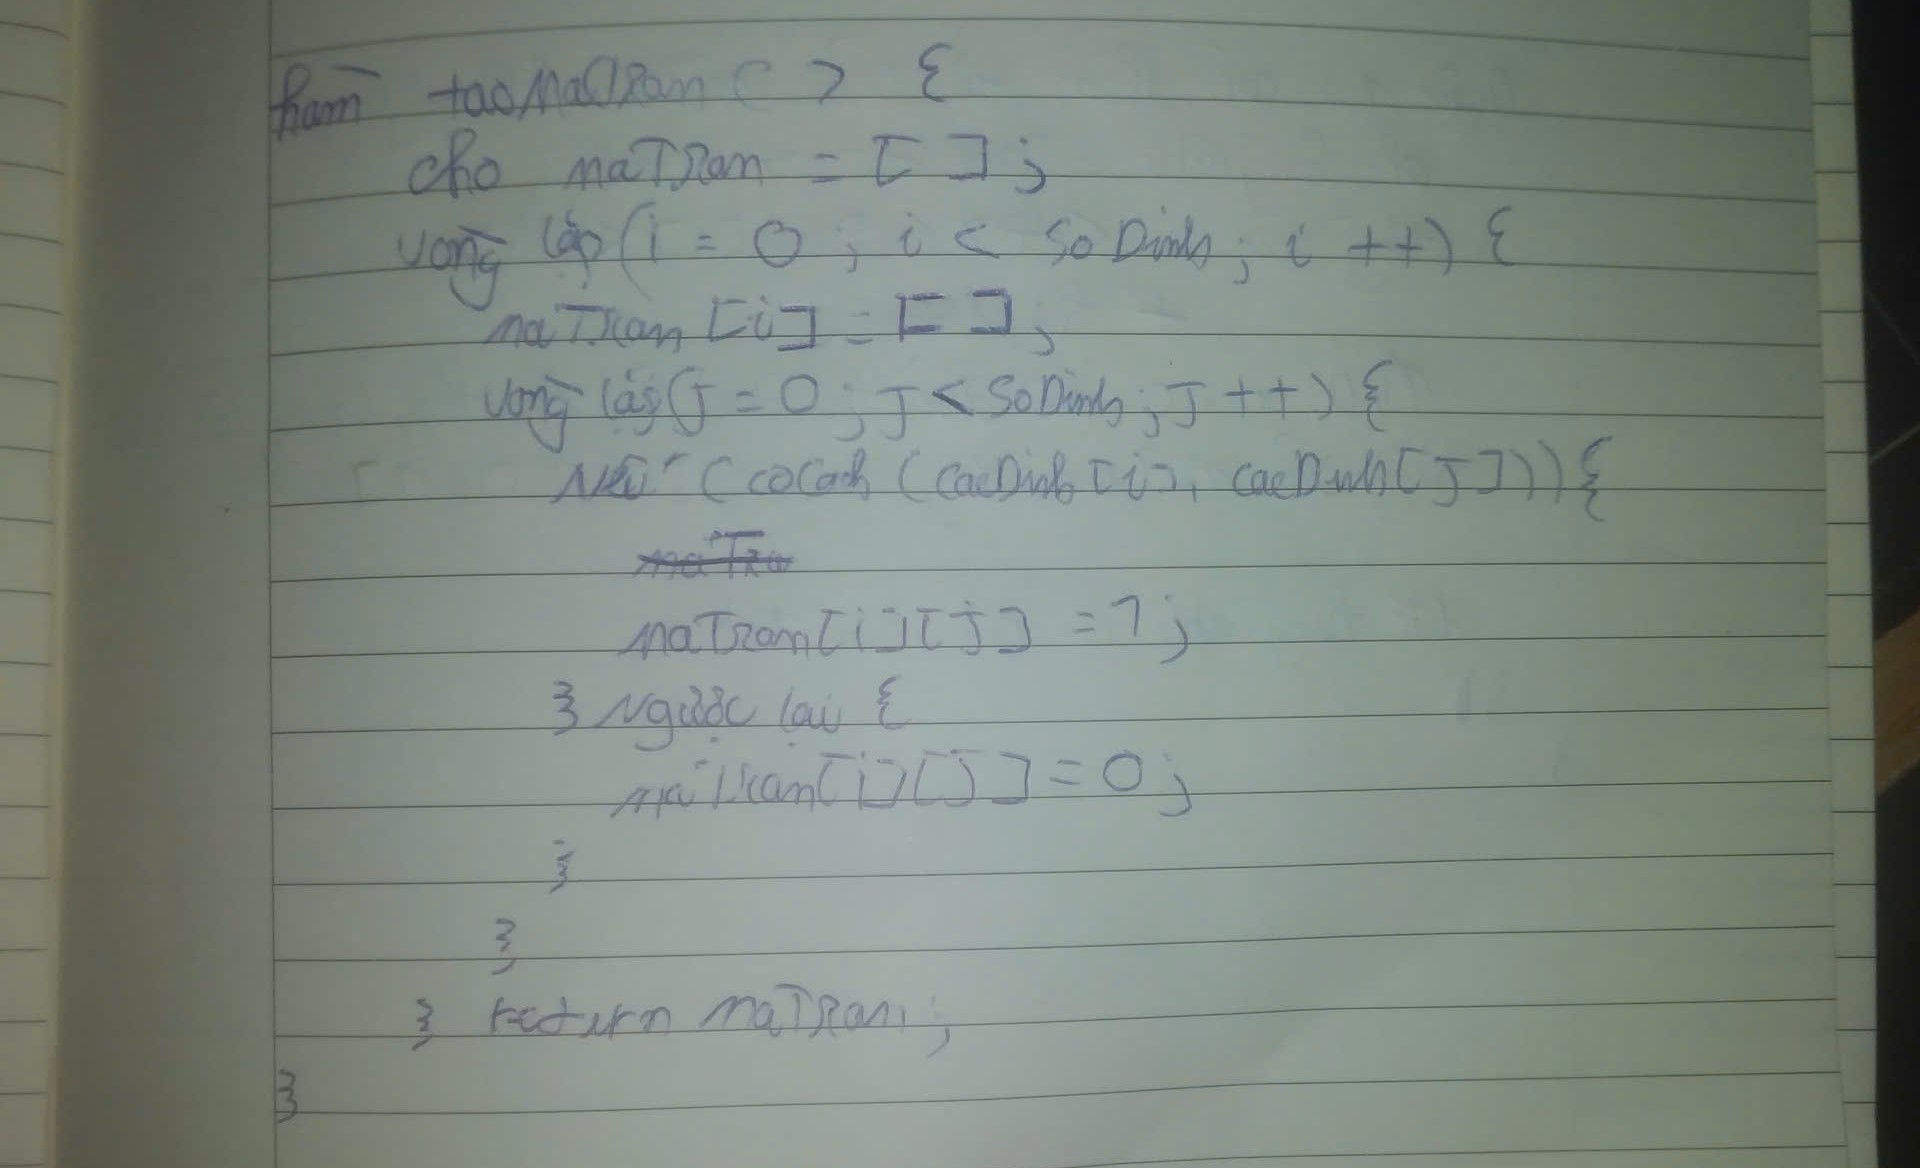 hàm taoMaTran ( ) {
cho maTran = [ ] ;
vòng lặp (i = 0 ; i < soDinh ; i ++) {
maTran [i] = [ ] ;
vòng lặp (j = 0 ; j < soDinh ; j ++) {
Nếu (coCanh (cacDinh [i], cacDinh [j])) {
maTra
maTran [i] [j] = 1 ;
} Ngược lại {
maTran [i] [j] = 0 ;
}
}
} return maTran ;
}